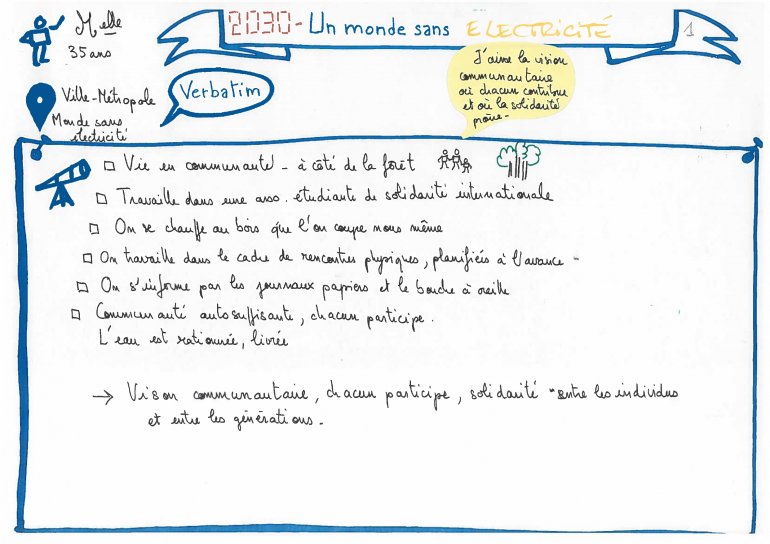 2030 - Un monde sans ELECTRICITÉ
1
Melle
35 ans
Ville-Métropole
Monde sans
électricité
Verbatim
J'aime la vision
communautaire
où chacun contribue
et où la solidarité
prône.
□ Vie en communauté - à côté de la forêt
□ Travaille dans une asso. étudiante de solidarité internationale
□ On se chauffe au bois que l'on coupe nous même
□ On travaille dans le cadre de rencontres physiques, planifiés à l'avance -
□ On s'informe par les journaux papiers et le bouche à oreille
□ Communauté autosuffisante, chacun participe.
L'eau est rationnée, livrée
→ Vison communautaire, chacun participe, solidarité entre les individus
et entre les générations.